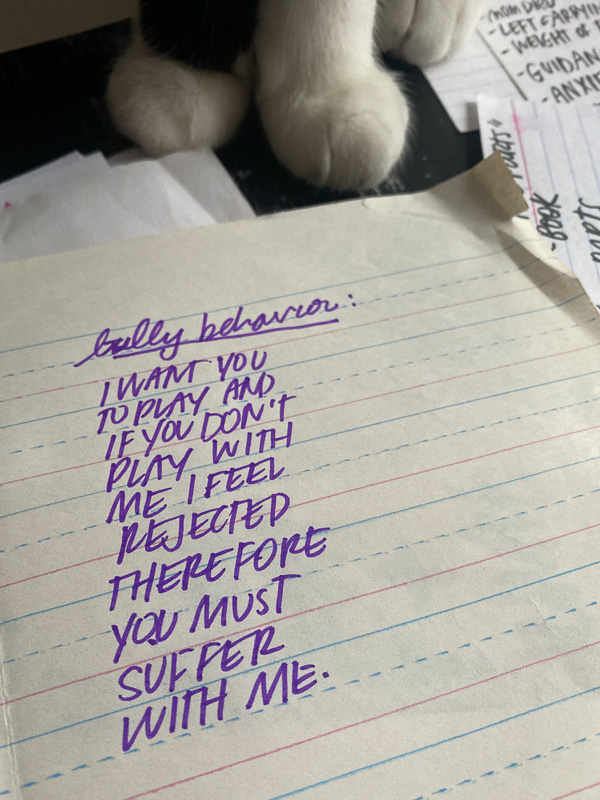 bully behavior:
I WANT YOU
TO PLAY AND
IF YOU DON'T
PLAY WITH
ME I FEEL
REJECTED
THEREFORE
YOU MUST
SUFFER
WITH ME.
MOM DIED
- LEFT CARRYING
- WEIGHT OF
- GUIDAN
- ANXIE
PARTS
BOOK
PARTS